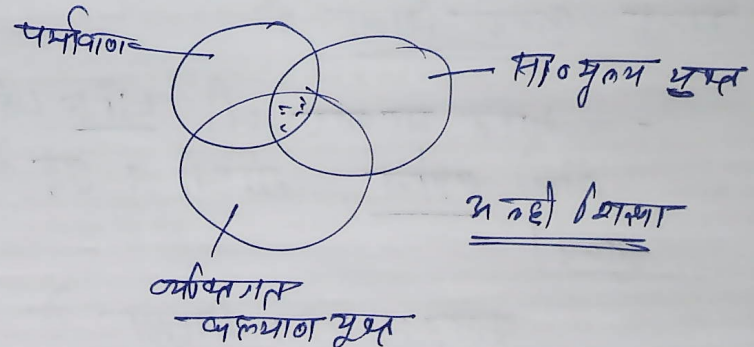 पर्यावरण
सा० मूल्य युक्त
अच्छी शिक्षा
व्यक्तिगत
कल्याण युक्त